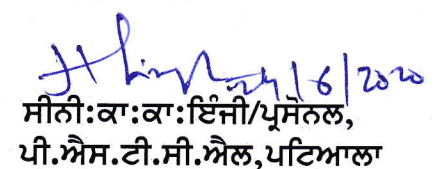 24/6/2020
ਸੀਨੀ:ਕਾ:ਕਾ:ਇੰਜੀ/ਪ੍ਰਸੋਨਲ,
ਪੀ.ਐਸ.ਟੀ.ਸੀ.ਐਲ,ਪਟਿਆਲਾ